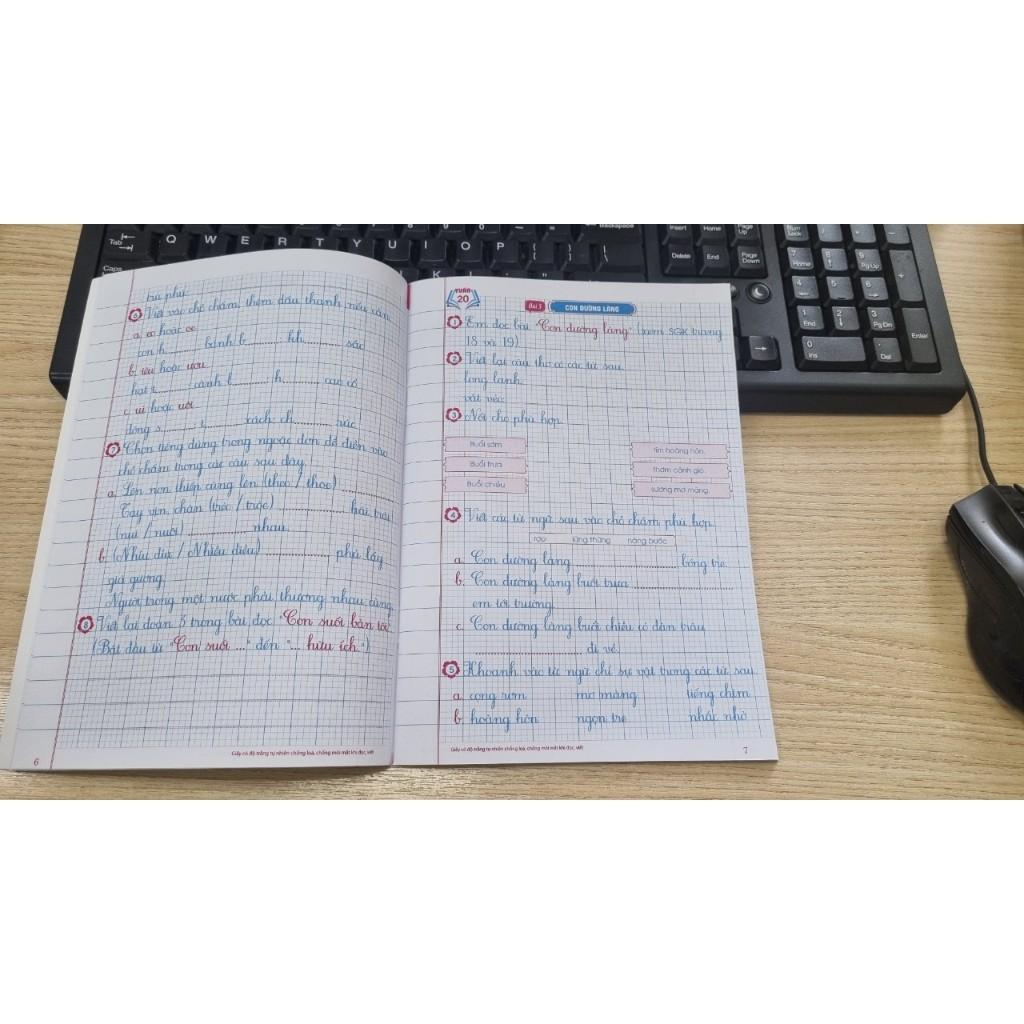 trù phú.
6 Viết vào chỗ chấm, thêm dấu thanh nếu cần.
a. oa hoặc oe
con h........ bánh b........ kh........ sắc
b. iêu hoặc ươu
c. ui hoặc uôi
dòng s........ t........ xách ch........ núc
7 Chọn tiếng đúng trong ngoặc đơn để điền vào
chỗ chấm trong các câu sau đây.
a. Lên non thiếp cũng lên (theo / thoe) ........
Tay vịn, chân (trèo / tròe) ........ hái trái
(nui / nuôi) ........ nhau.
b. (Nhiễu điều / Nhiễu điều) ........ phủ lấy
giá gương
Người trong một nước phải thương nhau cùng.
8 Viết lại đoạn 3 trong bài đọc "Con suối bản tôi"
(Bắt đầu từ "Con suối ..." đến "... hữu ích".)
Giấy có độ trắng tự nhiên chống loá, chống mỏi mắt khi đọc, viết
6
TUẦN
20
Bài 3
CON ĐƯỜNG LÀNG
1 Em đọc bài "Con đường làng" (xem SGK trang
18 và 19)
2 Viết lại câu thơ có các từ sau
long lanh
vắt vẻo
3 Nối cho phù hợp.
Buổi sớm
tím hoàng hôn.
Buổi trưa
thơm cánh gió.
Buổi chiều
sương mơ màng.
4 Viết các từ ngữ sau vào chỗ chấm phù hợp.
râu lững thững nâng bước
a. Con đường làng ........ bóng tre.
b. Con đường làng buổi trưa ........
em tới trường.
c. Con đường làng buổi chiều có đàn trâu
........ đi về.
5 Khoanh vào từ ngữ chỉ sự vật trong các từ sau
a. cọng rơm mơ màng tiếng chim
b. hoàng hôn ngọn tre nhắc nhở
Giấy có độ trắng tự nhiên chống loá, chống mỏi mắt khi đọc, viết
7
Tab
Caps
Q W E R T Y U I O P
K L
Backspace
Insert Home Page Up
Delete End Page Down
Num Lock
7 Home 8 9 Pg Up
4 5 6
1 End 2 3 Pg Dn
Enter
0 Ins . Del